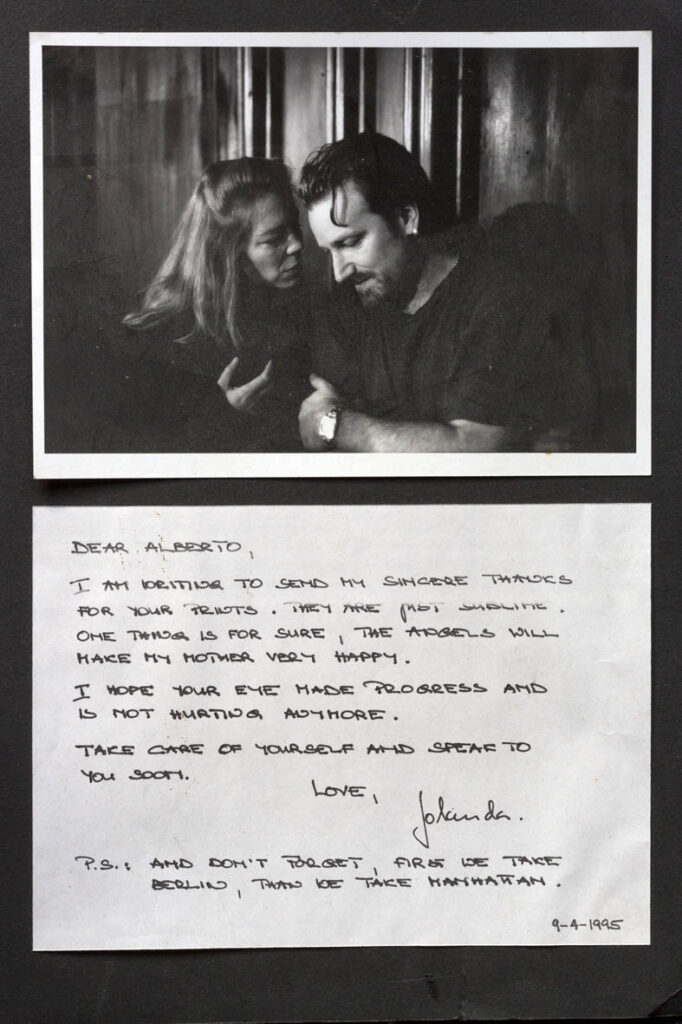 DEAR ALBERTO,
I AM WRITING TO SEND MY SINCERE THANKS
FOR YOUR PRINTS. THEY ARE JUST SUBLIME.
ONE THING IS FOR SURE, THE ANGELS WILL
MAKE MY MOTHER VERY HAPPY.
I HOPE YOUR EYE MADE PROGRESS AND
IS NOT HURTING ANYMORE.
TAKE CARE OF YOURSELF AND SPEAK TO
YOU SOON.
LOVE,
Jolanda.
P.S.: AND DON'T FORGET, FIRST WE TAKE
BERLIN, THAN WE TAKE MANHATTAN.
9-4-1995